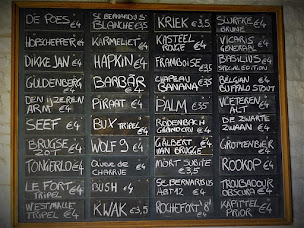 DE POES €4
HOPSCHEPPER €4
DIKKE JAN €4
GULDENBERG €4
DEN IJZEREN
ARM €4
SEEF €4
BRUGSE
€4
TONGERLO €4
LE FORT
TRIPEL €4
WESTMALLE
TRIPEL €4
ST. BERNARDUS
BLANCHE €3,5
KARMELIET €4
HAPKIN €4
BARBÄR €4
PIRAAT €4
BUX TRIPEL €4
WOLF 9 €4
QUEUE DE
CHARRUE €4
BUSH €4
KWAK €3,5
KRIEK €3,5
KASTEEL
ROUGE €4
FRAMBOISE
€3,5
CHAPEAU
BANANA €3,5
PALM €3,5
RODENBACH
GRAND CRU €4
GALBERT
VAN BRUGGE €4
MORT SUBITE
€3,5
ST. BERNARDUS
ABT 12 €4
ROCHEFORT "8" €4
SLURFKE €4
BRUNE
VICARIS
GENERAAL €4
BASILIUS €4
SPECIAL EDITION
BELGIAN €4
BUFFALO STOUT
VICTEREN €4
ALT
DE ZWARTE
ZWAAN €4
GROTTENBIER €4
ROOKOP €4
TROUBADOUR
OBSCURA €4
KAPITTEL
PRIOR €4